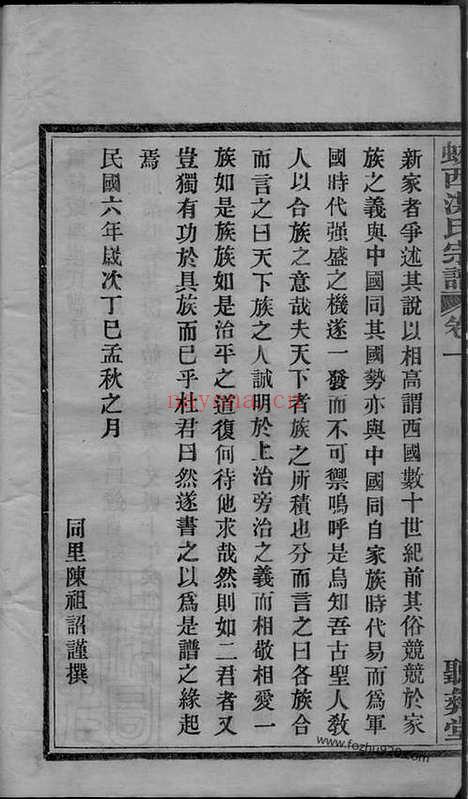 新家者爭述其說以相高謂西國數十世紀前其俗競競於家
族之義與中國同其國勢亦與中國同自家族時代易而為軍
國時代强盛之機遂一發而不可禦嗚呼是烏知吾古聖人教
人以合族之意哉夫天下者族之所積也分而言之曰各族合
而言之曰天下族之人誠明於上治旁治之義而相敬相愛一
族如是族族如是治平之道復何待他求哉然則如二君者又
豈獨有功於具族而已乎杜君曰然遂書之以為是譜之緣起
焉
民國六年歲次丁巳孟秋之月
同里陳祖詔謹撰
西 氏宗譜 卷一
聽彝堂
nayona.cn
www.fezhu920.com